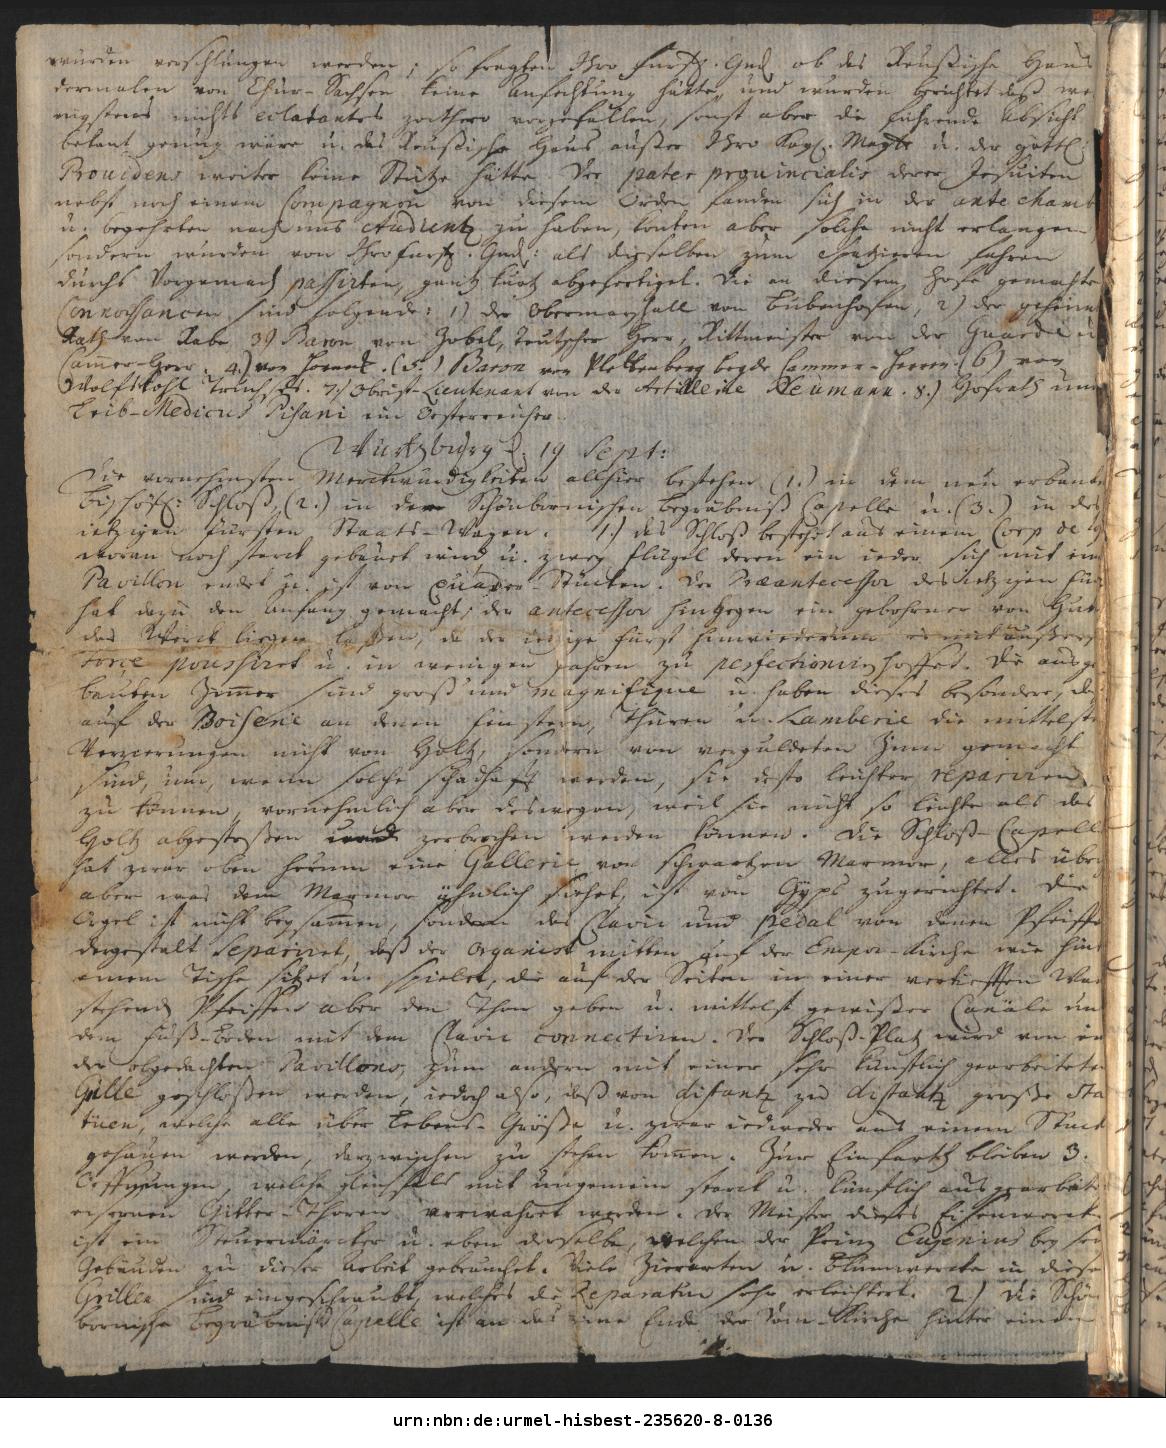 würden verschlungen werden; so fragten Ihro Fürstl. Gnd. ob das Reußische Haus
dermalen von Chur-Sachsen keine Anfechtung hätte, und wurden berichtet daß we
nigstens nichts eclatantes zeithero vorgefallen, sonst aber die führende Absicht
bekant genung wäre u. das Reußische Haus außer Ihro Kayl. Maytt u. der göttl.
Providenz weiter keine Stütze hätte. Der pater provincialis derer Jesuiten
nebst noch einem Compagnon von diesem Orden fanden sich in der antechamb
u. begehrten nach uns Audientz zu haben, konten aber solche nicht erlangen
sondern wurden von Ihro Fürstl. Gnd. als dieselben zum spatzieren fahren
durchs Vorgemach passirten, gantz kurtz abgefertiget. Die an diesem Hofe gemachte
Connoissancen sind folgende: 1) der Obermarschall von Bubenhofen, 2) der geheime
Rath von Rabe 3) Baron von Zobel, Teutscher Herr, Rittmeister von der Guarde u
Cammer-Herr. 4.) von (5.) Baron von Plettenberg beyde Cammer-Herren (6) von
Wolfskehl Truchses. 7.) Obrist-Lieutenant von der Artillerie Neumann. 8.) Hofrath und
Leib-Medicus Pisani ein Oesterreicher.
Würtzburg d. 19 Sept:
Die vornehmsten Merckwürdigkeiten allhier bestehen (1.) in dem neu erbaute
bischöfl: Schloß, (2.) in der Schönbornischen Begräbniß Capelle u. (3.) in des
ietzigen Fürsten Staats-Wagen. 1.) das Schloß bestehet aus einem Corp de
woran noch starck gebauet wird u. zwey Flügel deren ein ieder sich mit ein
Pavillon endet u. ist von Quader-Stücken. Der Præantecessor des ietzigen Für
hat dazu den Anfang gemacht; der antecessor hingegen ein gebohrner von Hut
das Werck liegen laßen, da der ietzige Fürst hinwiederum es mit äußers
Force poussiret u. in wenigen Jahren zu perfectioniren hoffet. Die ausge
bauten Zimmer sind groß und magnifique u. haben dieses besondere, daß
auf der Boiserie an denen Fenstern, Thüren u. Lamberie die mittelste
Verzierungen nicht von Holtz, sondern von verguldeten Zinn gemacht
sind, um, wenn solche schadhafft werden, sie desto leichter repariren
zu können, vornehmlich aber deswegen, weil sie nicht so leichte als das
Holtz abgestoßen und zerbrochen werden können. Die Schloß-Capell
hat zwar oben herum eine Gallerie von schwartzen Marmor, alles übri
aber was dem Marmor ähnlich siehet, ist von Gyps zugerichtet. Die
Orgel ist nicht beysammen, sondern das Clavir und Pedal von denen Pfeiffe
dergestalt separiret, daß der Organist mitten auf der Empor-Kirche wie hint
einem Tische sitzet u. spielet, die auf der Seiten in einer vertiefften Wan
stehende Pfeiffen aber den Thon geben u. mittelst gewißer Canäle un
dem Fuß-Boden mit dem Clavir connectiren. Der Schloß-Platz wird von
die obgedachten Pavillons, zum andern mit einer sehr künstlich gearbeitete
Grille geschloßen werden, iedoch also, daß von distantz zu distantz große Sta
tuen, welche alle über Lebens-Größe u. zwar iedweder aus einem Stück
gehauen werden, darzwischen zu stehen kommen. Zur Einfarth bleiben 3.
Oeffnungen, welche gleichfals mit ungemein starck u. künstlich ausgearbeite
eisernen Gitter-Thoren verwahret werden. Der Meister dieses Eisenwerck
ist ein Steuermärcker u. eben derselbe, welchen der Prinz Eugenius bey sei
Gebäuden zu dieser Arbeit gebrauchet. Viele Zierarten u. Blumwercke in diese
Grillen sind eingeschraubt, welches die Reparatur sehr erleichtert. 2.) Die Schön
bornische Begräbniß Capelle ist an das eine Ende der Dom-Kirche hinter einen
urn:nbn:de:urmel-hisbest-235620-8-0136